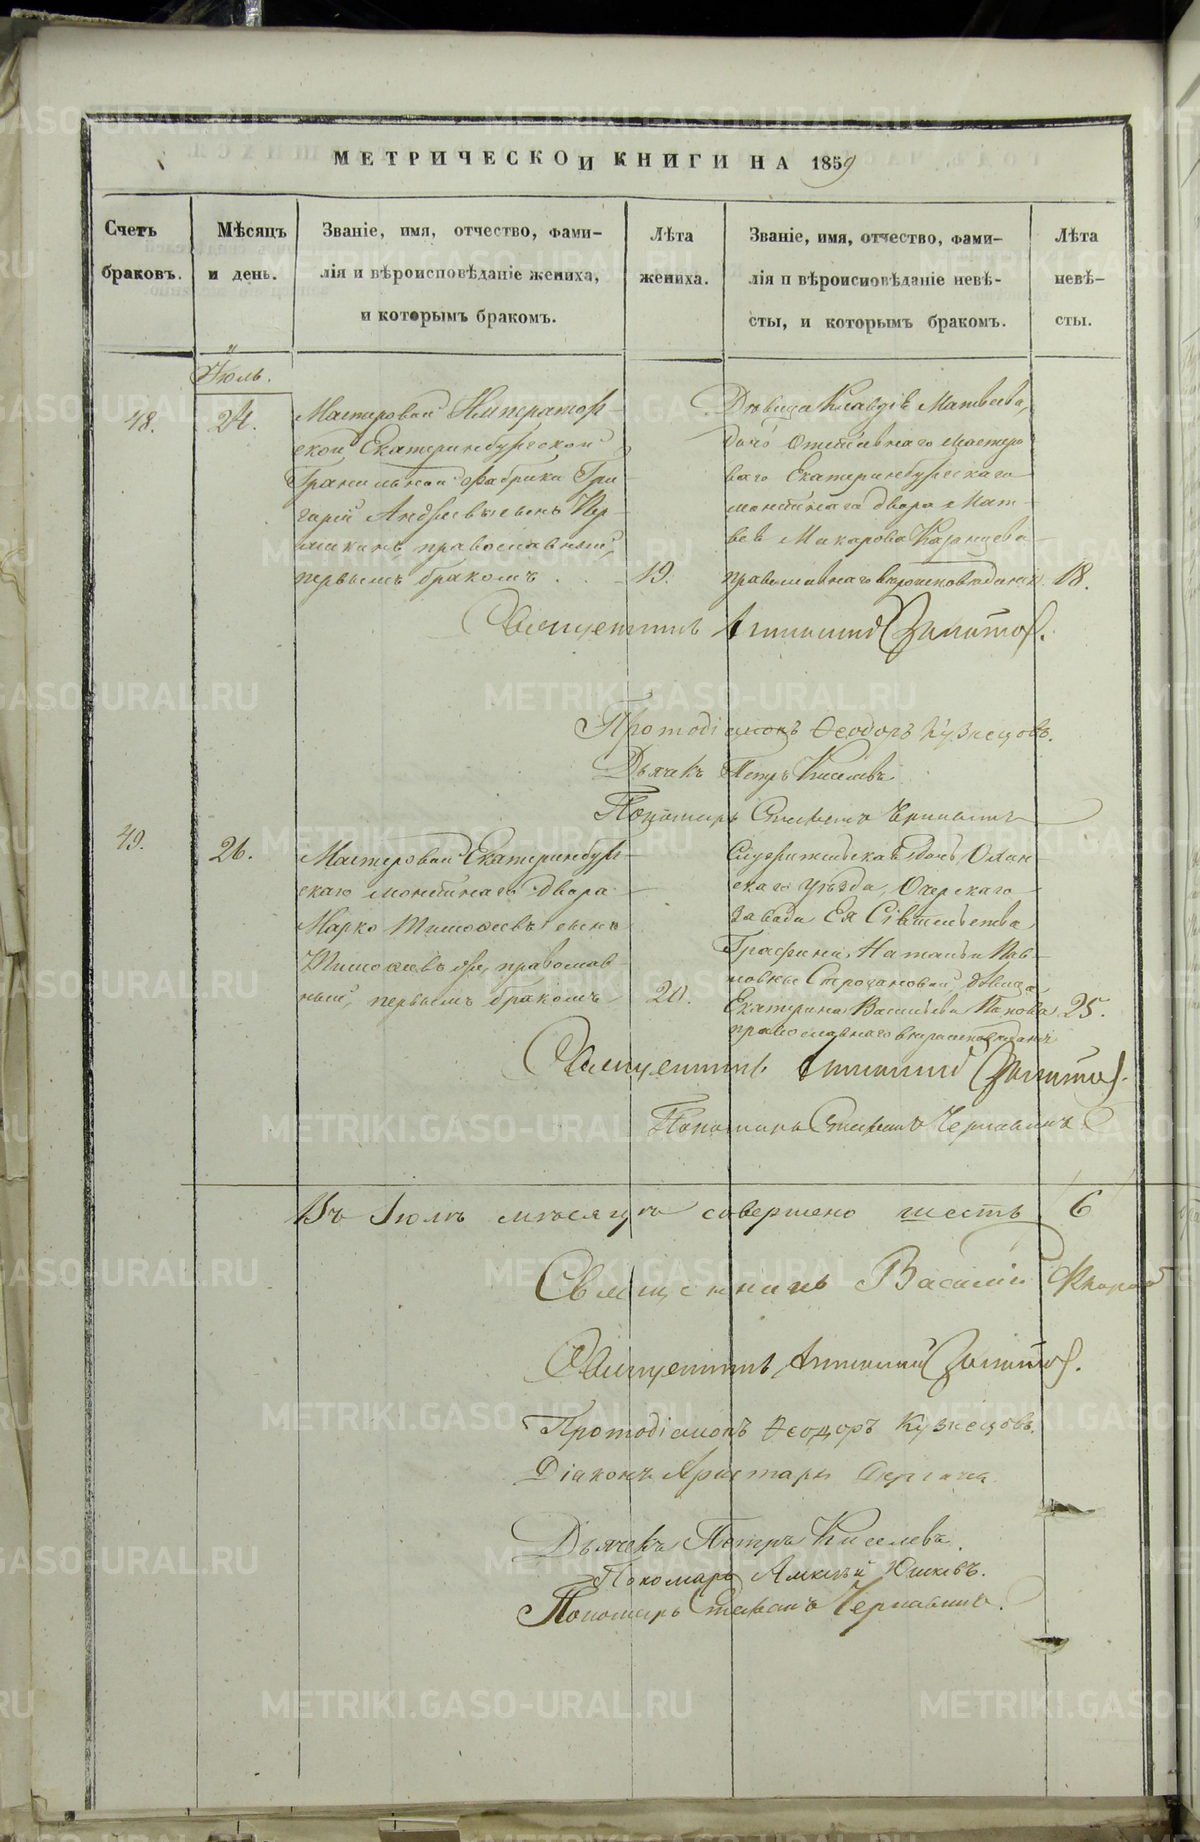 МЕТРИЧЕСКОЙ КНИГИ НА 1859
Счетъ браковъ.
Мѣсяцъ и день.
Званіе, имя, отчество, фами-
лія и вѣроисповѣданіе жениха,
и которымъ бракомъ.
Лѣта жениха.
Званіе, имя, отчество, фами-
лія и вѣроисповѣданіе невѣ-
сты, и которымъ бракомъ.
Лѣта невѣ-
сты.
Іюль.
48.
24.
Мастеровой Император-
ской Екатеринбургской
Гранильной Фабрики Гри-
горій Андреевъ сынъ
православный,
первымъ бракомъ
19.
Дѣвица Клавдія Матвѣева,
дочь отставнаго мастеро-
ваго Екатеринбургскаго
монетнаго двора Мат-
вея Макарова Казанцева
православнаго вѣроисповѣданія
18.
Священникъ
Протодіаконъ Ѳеодоръ Кузнецовъ.
Дьячекъ Петръ Киселевъ
Пономарь Стефанъ Чернавинъ
49.
26.
Мастеровой Екатеринбург-
скаго монетнаго двора
Марко Тимофеевъ сынъ
православ-
ный, первымъ бракомъ
20.
Охан-
скаго уѣзда, Очерскаго
завода Ея Сіятельства
Графини Натальи Пав-
ловны Строгановой, дѣвица
Екатерина Васильева Попова
православнаго вѣроисповѣданія
25.
Священникъ
Пономарь Стефанъ Чернавинъ
Въ Іюлѣ мѣсяцѣ совершено шесть 6
Священникъ Василій
Священникъ
Протодіаконъ Ѳеодоръ Кузнецовъ.
Діаконъ Аристархъ
Дьячекъ Петръ Киселевъ.
Пономарь Алексѣй Юшковъ.
Пономарь Стефанъ Чернавинъ.
METRIKI.GASO-URAL.RU